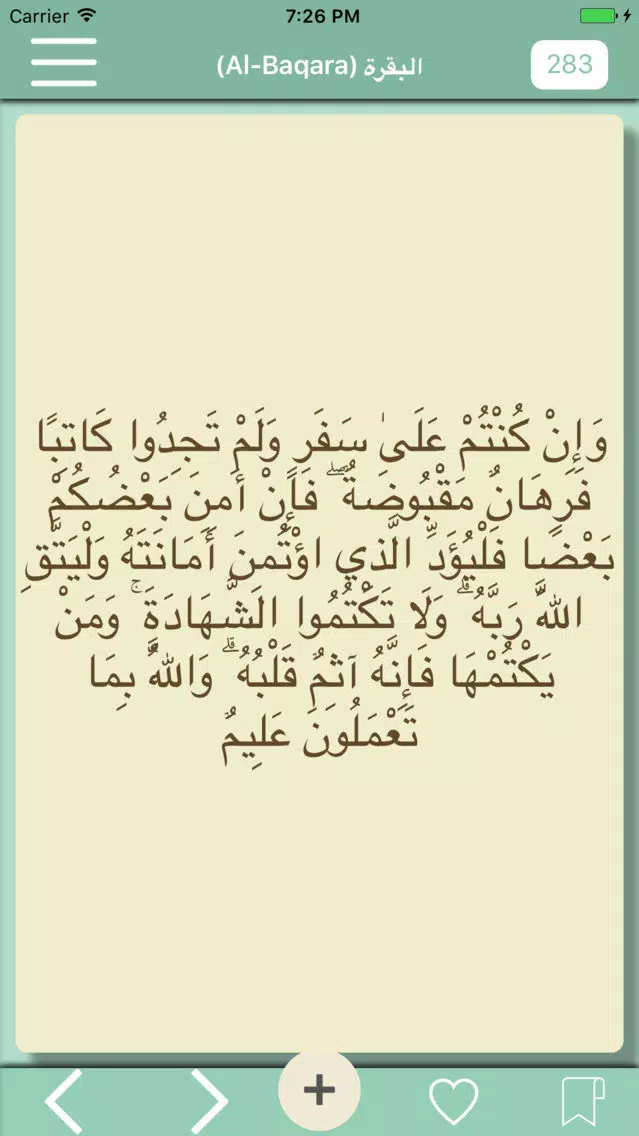 Carrier 7:26 PM
البقرة (Al-Baqara) 283
وَإِنْ كُنْتُمْ عَلَىٰ سَفَرٍ وَلَمْ تَجِدُوا كَاتِبًا
فَرِهَانٌ مَقْبُوضَةٌ ۖ فَإِنْ أَمِنَ بَعْضُكُمْ
بَعْضًا فَلْيُؤَدِّ الَّذِي اؤْتُمِنَ أَمَانَتَهُ وَلْيَتَّقِ
اللَّهَ رَبَّهُ ۗ وَلَا تَكْتُمُوا الشَّهَادَةَ ۚ وَمَنْ
يَكْتُمْهَا فَإِنَّهُ آثِمٌ قَلْبُهُ ۗ وَاللَّهُ بِمَا
تَعْمَلُونَ عَلِيمٌ